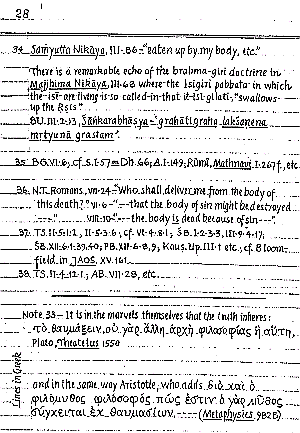 28
34. Saṁyutta Nikāya, III.86-"eaten up by my body, etc."
There is a remarkable echo of the brahma-giri doctrine in
Majjhima Nikāya, III.68 where the Isigiri pabbata in which
the isī are living is so called-in that it isī gilati, "swallows
up the Ṛṣis".
BU.III.2.13, Śaṅkarabhāsya-"grahātigraha lakṣaṇena
mṛtyunā grastam".
35. BG.VI.6, cf. S.I.57 = Dh.66; A.I.149; Rūmī, Mathnawī I.267f., etc.
36. N.T. Romans, VII.24-"Who shall deliver me from the body of
this death?" VI.6-"--that the body of sin might be destroyed
---". VIII.10-"--the body is dead because of sin---".
37. TS.II.5.1.2, II.5.3.6; cf. VI.4.8.1; ŚB.I.2.3.3, III.9.4.17;
ŚB.XII.6.1.39,40; PB.XII.6.8,9; Kauṣ. Up. III.1 etc.; cf. Bloom-
field, in JAOS, XV.161.
38. TS.II.4.12.1; AB.VII.28, etc.
Note 33-It is in the marvels themselves that the truth inheres:
τὸ θαυμάζειν, οὐ γὰρ ἄλλη ἀρχὴ φιλοσοφίας ἢ αὕτη,
Plato, Theatetus 155D
Lines in Greek
and in the same way Aristotle, who adds, διὸ καὶ ὁ
φιλόμυθος φιλόσοφός πώς ἐστιν· ὁ γὰρ μῦθος
σύγκειται ἐκ θαυμασίων, ----(Metaphysics, 982B).